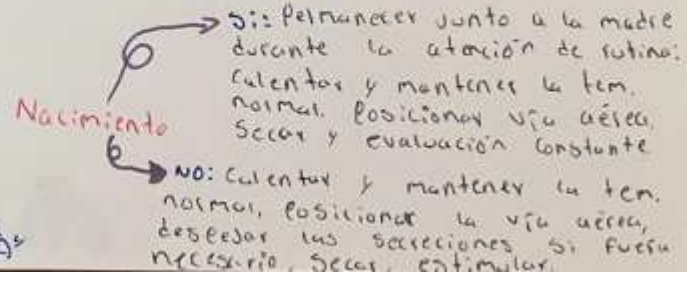 Si: Permanecer junto a la madre
durante la atención de rutina:
Calentar y mantener la tem.
normal. Posicionar vía aérea.
Secar y evaluación constante
Nacimiento
NO: Calentar y mantener la tem.
normal, Posicionar la vía aérea,
despejar las secreciones si fuera
necesario, secar, estimular.